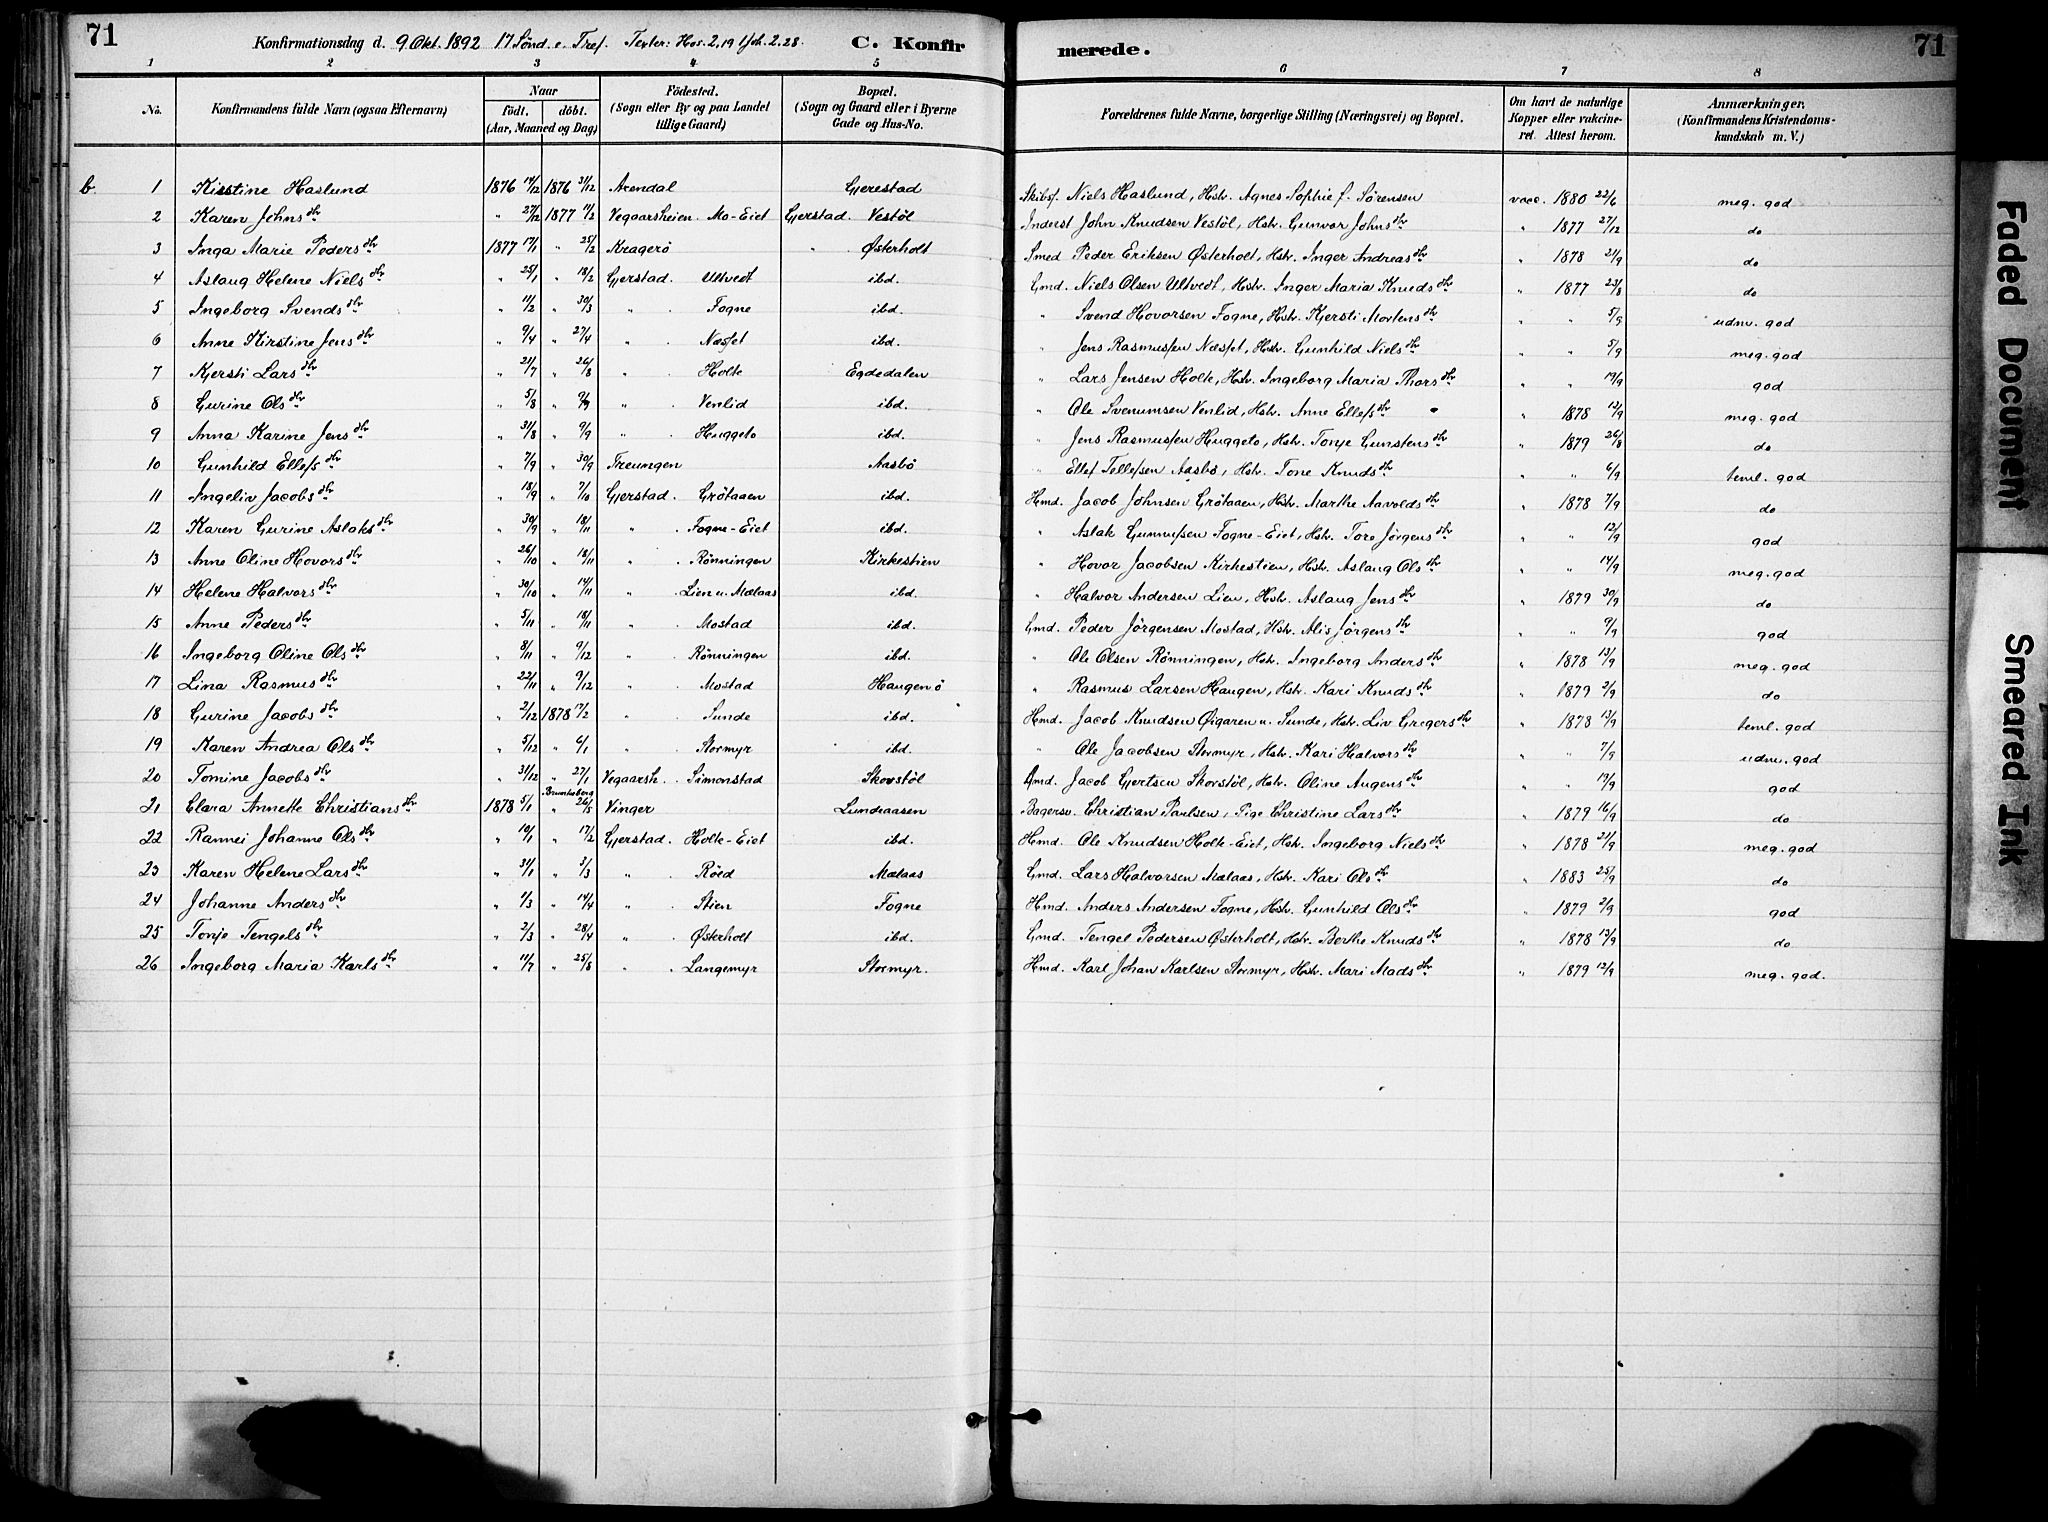 71
Konfirmationsdag d. 9 Okt. 1892 17 Sönd. e. Tref. Texter: Hos. 2,19 1 Joh. 2.28. C. Konfir merede. 71
1 2 3 4 5 6 7 8
No. Konfirmandens fulde Navn (ogsaa Efternavn) Naar födt. döbt. (Aar, Maaned og Dag) Födested. (Sogn eller By og paa Landet tillige Gaard) Bopæl. (Sogn og Gaard eller i Byerne Gade og Hus-No. Forældrenes fulde Navne, borgerlige Stilling (Næringsvei) og Bopæl. Om havt de naturlige Kopper eller vakcineret. Attest herom. Anmærkninger. (Konfirmandens Kristendomskundskab m. V.)
b. 1 Kisstine Haslund 1876 14/12 1876 31/12 Arendal Gjerestad Skibsf. Niels Haslund, Hstr. Agnes Sophie f. Sörensen vacc. 1880 22/6 meg. god
2 Karen Johns dtr " 27/12 1877 11/2 Vegaarsheien. Mo-Eiet Gjerstad. Vestöl Inderst John Knudsen Vestöl, Hstr. Gunvor Johns dtr " 1877 27/12 do
3 Inga Marie Peders dtr 1877 17/1 " 25/2 Kragerö " Østerholt Smed Peder Eriksen Østerholt, Hstr. Inger Andreas dtr " 1878 21/9 do
4 Aslaug Helene Niels dtr " 25/1 " 18/2 Gjerstad. Ultvedt ibd. Gmd. Niels Olsen Ultvedt, Hstr. Inger Maria Knuds dtr " 1877 23/8 do
5 Ingeborg Svends dtr " 11/2 " 30/3 " . Fogne ibd. " Svend Hovorsen Fogne, Hstr. Kjersti Mortens dtr " " 5/9 udm. god
6 Anne Kirstine Jens dtr " 9/4 " 27/4 " . Næsset ibd. " Jens Rasmussen Næsset, Hstr. Gunhild Niels dtr " " 5/9 meg. god
7 Kjersti Lars dtr " 21/7 " 26/8 " . Holte Egdedalen " Lars Jensen Holte, Hstr. Ingeborg Maria Thors dtr " " 19/9 god
8 Gurine Ols dtr " 5/8 " 9/9 " . Venlid ibd. " Ole Svenumsen Venlid, Hstr. Anne Ellefs dtr " 1878 13/9 meg. god
9 Anna Karine Jens dtr " 31/8 " 9/9 " . Huggeto ibd. " Jens Rasmussen Huggeto, Hstr. Tonje Gunstens dtr " 1879 26/8 do
10 Gunhild Ellefs dtr " 7/9 " 30/9 Treungen Aasbö " Ellef Tellefsen Aasbö, Hstr. Tone Knuds dtr " " 6/9 teml. god
11 Angeliv Jacobs dtr " 18/9 " 7/10 Gjerstad. Grötaaen ibd. Hmd. Jacob Johnsen Grötaaen, Hstr. Marthe Aavolds dtr " 1878 7/9 do
12 Karen Gurine Aslaks dtr " 30/9 " 18/11 " . Fogne-Eiet ibd. " Aslak Gunnufsen Fogne-Eiet, Hstr. Tore Jörgens dtr " " 12/9 god
13 Anne Oline Hovors dtr " 26/10 " 18/11 " . Rönningen Kirkestien " Hovor Jacobsen Kirkestien, Hstr. Aslaug Ols dtr " " 14/9 meg. god
14 Helene Halvors dtr " 30/10 " 14/11 " . Lien u. Mælaas ibd. " Halvor Andersen Lien, Hstr. Aslaug Jens dtr " 1879 30/9 do
15 Anne Peders dtr " 5/11 " 18/11 " . Mostad ibd. Gmd. Peder Jörgensen Mostad, Hstr. Alis Jörgens dtr " " 9/9 god
16 Ingeborg Oline Ols dtr " 8/11 " 9/12 " . Rönningen ibd. " Ole Olsen Rönningen, Hstr. Ingeborg Anders dtr " 1878 13/9 meg. god
17 Lina Rasmus dtr " 22/11 " 9/12 " . Mostad Haugen ö " Rasmus Larsen Haugen, Hstr. Kari Knuds dtr " 1879 2/9 do
18 Gurine Jacobs dtr " 2/12 1878 17/2 " . Sunde ibd. Hmd. Jacob Knudsen Øigaren u. Sunde, Hstr. Liv Gregers dtr " 1878 13/9 teml. god
19 Karen Andrea Ols dtr " 5/12 " 6/1 " . Stormyr ibd. " Ole Jacobsen Stormyr, Hstr. Kari Halvors dtr " " 7/9 udm. god
20 Tomine Jacobs dtr " 31/12 " 27/1 Vegaarsh. . Simonstad Skovstöl Gmd. Jacob Gjertsen Skovstöl, Hstr. Oline Augens dtr " " 19/9 god
21 Clara Annette Christians dtr 1878 5/1 " 26/5 Brunkeberg Vinger Lundaasen Bagersv. Christian Paulsen, Pige Christine Lars dtr " 1879 16/9 do
22 Rannei Johanne Ols dtr " 10/1 " 17/2 Gjerstad. Holte-Eiet ibd. Hmd. Ole Knudsen Holte-Eiet, Hstr. Ingeborg Niels dtr " 1878 21/9 meg. god
23 Karen Helene Lars dtr " 31/1 " 3/3 " . Röed Mælaas Gmd. Lars Halvorsen Mælaas, Hstr. Kari Ols dtr " 1883 25/9 do
24 Johanne Anders dtr " 1/3 " 14/4 " . Stien Fogne Hmd. Anders Andersen Fogne, Hstr. Gunhild Ols dtr " 1879 2/9 god
25 Tonje Tengels dtr " 2/3 " 28/4 " . Østerholt ibd. Gmd. Tengel Pedersen Østerholt, Hstr. Berthe Knuds dtr " 1878 13/9 do
26 Ingeborg Maria Karls dtr " 11/7 " 25/8 " . Langemyr Stormyr. Hmd. Karl Johan Karlsen Stormyr, Hstr. Mari Mads dtr " 1879 12/9 meg. god.
Faded Document
Smeared Ink